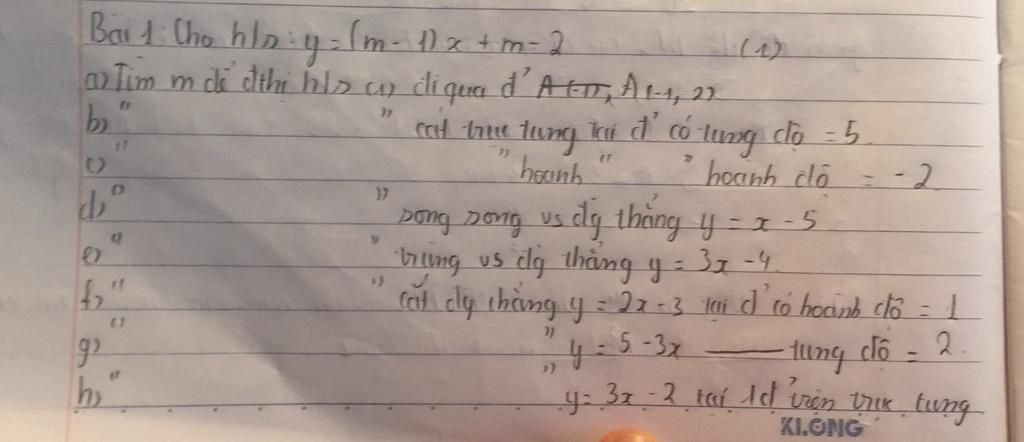 Bài 1: Cho h/s: y = (m - 1) x + m - 2 (1)
a) Tìm m để đthị h/s (1) đi qua đ' A(-1, 2)
b) " " cắt trục tung tại đ' có tung độ = 5
c) " " hoành " " hoành độ = -2
d) " " song song vs đg thẳng y = x - 5
e) " " trùng vs đg thẳng y = 3x - 4
f) " " cắt đg thẳng y = 2x - 3 tại đ' có hoành độ = 1
g) " " y = 5 - 3x —— tung độ = 2.
h) " " y = 3x - 2 tại 1đ' trên trục tung
KLONG